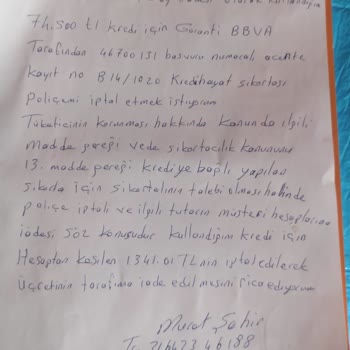 olarak kullandığım
74.500 tl kredi için Garanti BBVA
Tarafından 46700131 başvuru numaralı acente
kayıt no B14/1020 Kredihayat sikortası
Poliçemi iptal etmek istiyorum
Tüketicinin korunması hakkında kanunda ilgili
madde gereği vede sikortacılık kanununu
13. madde gereği krediye bağlı yapılan
sikorta için sikortalının talebi olması halinde
poliçe iptali ve ilgili tutarın müşteri hesaplarına
iadesi söz konusudur kullandığım kredi için
Hesaptan kesilen 1341.01 TL nin iptal edilerek
üçretinin tarafıma iade edilmesini rica ediyorum
Murat Şahin